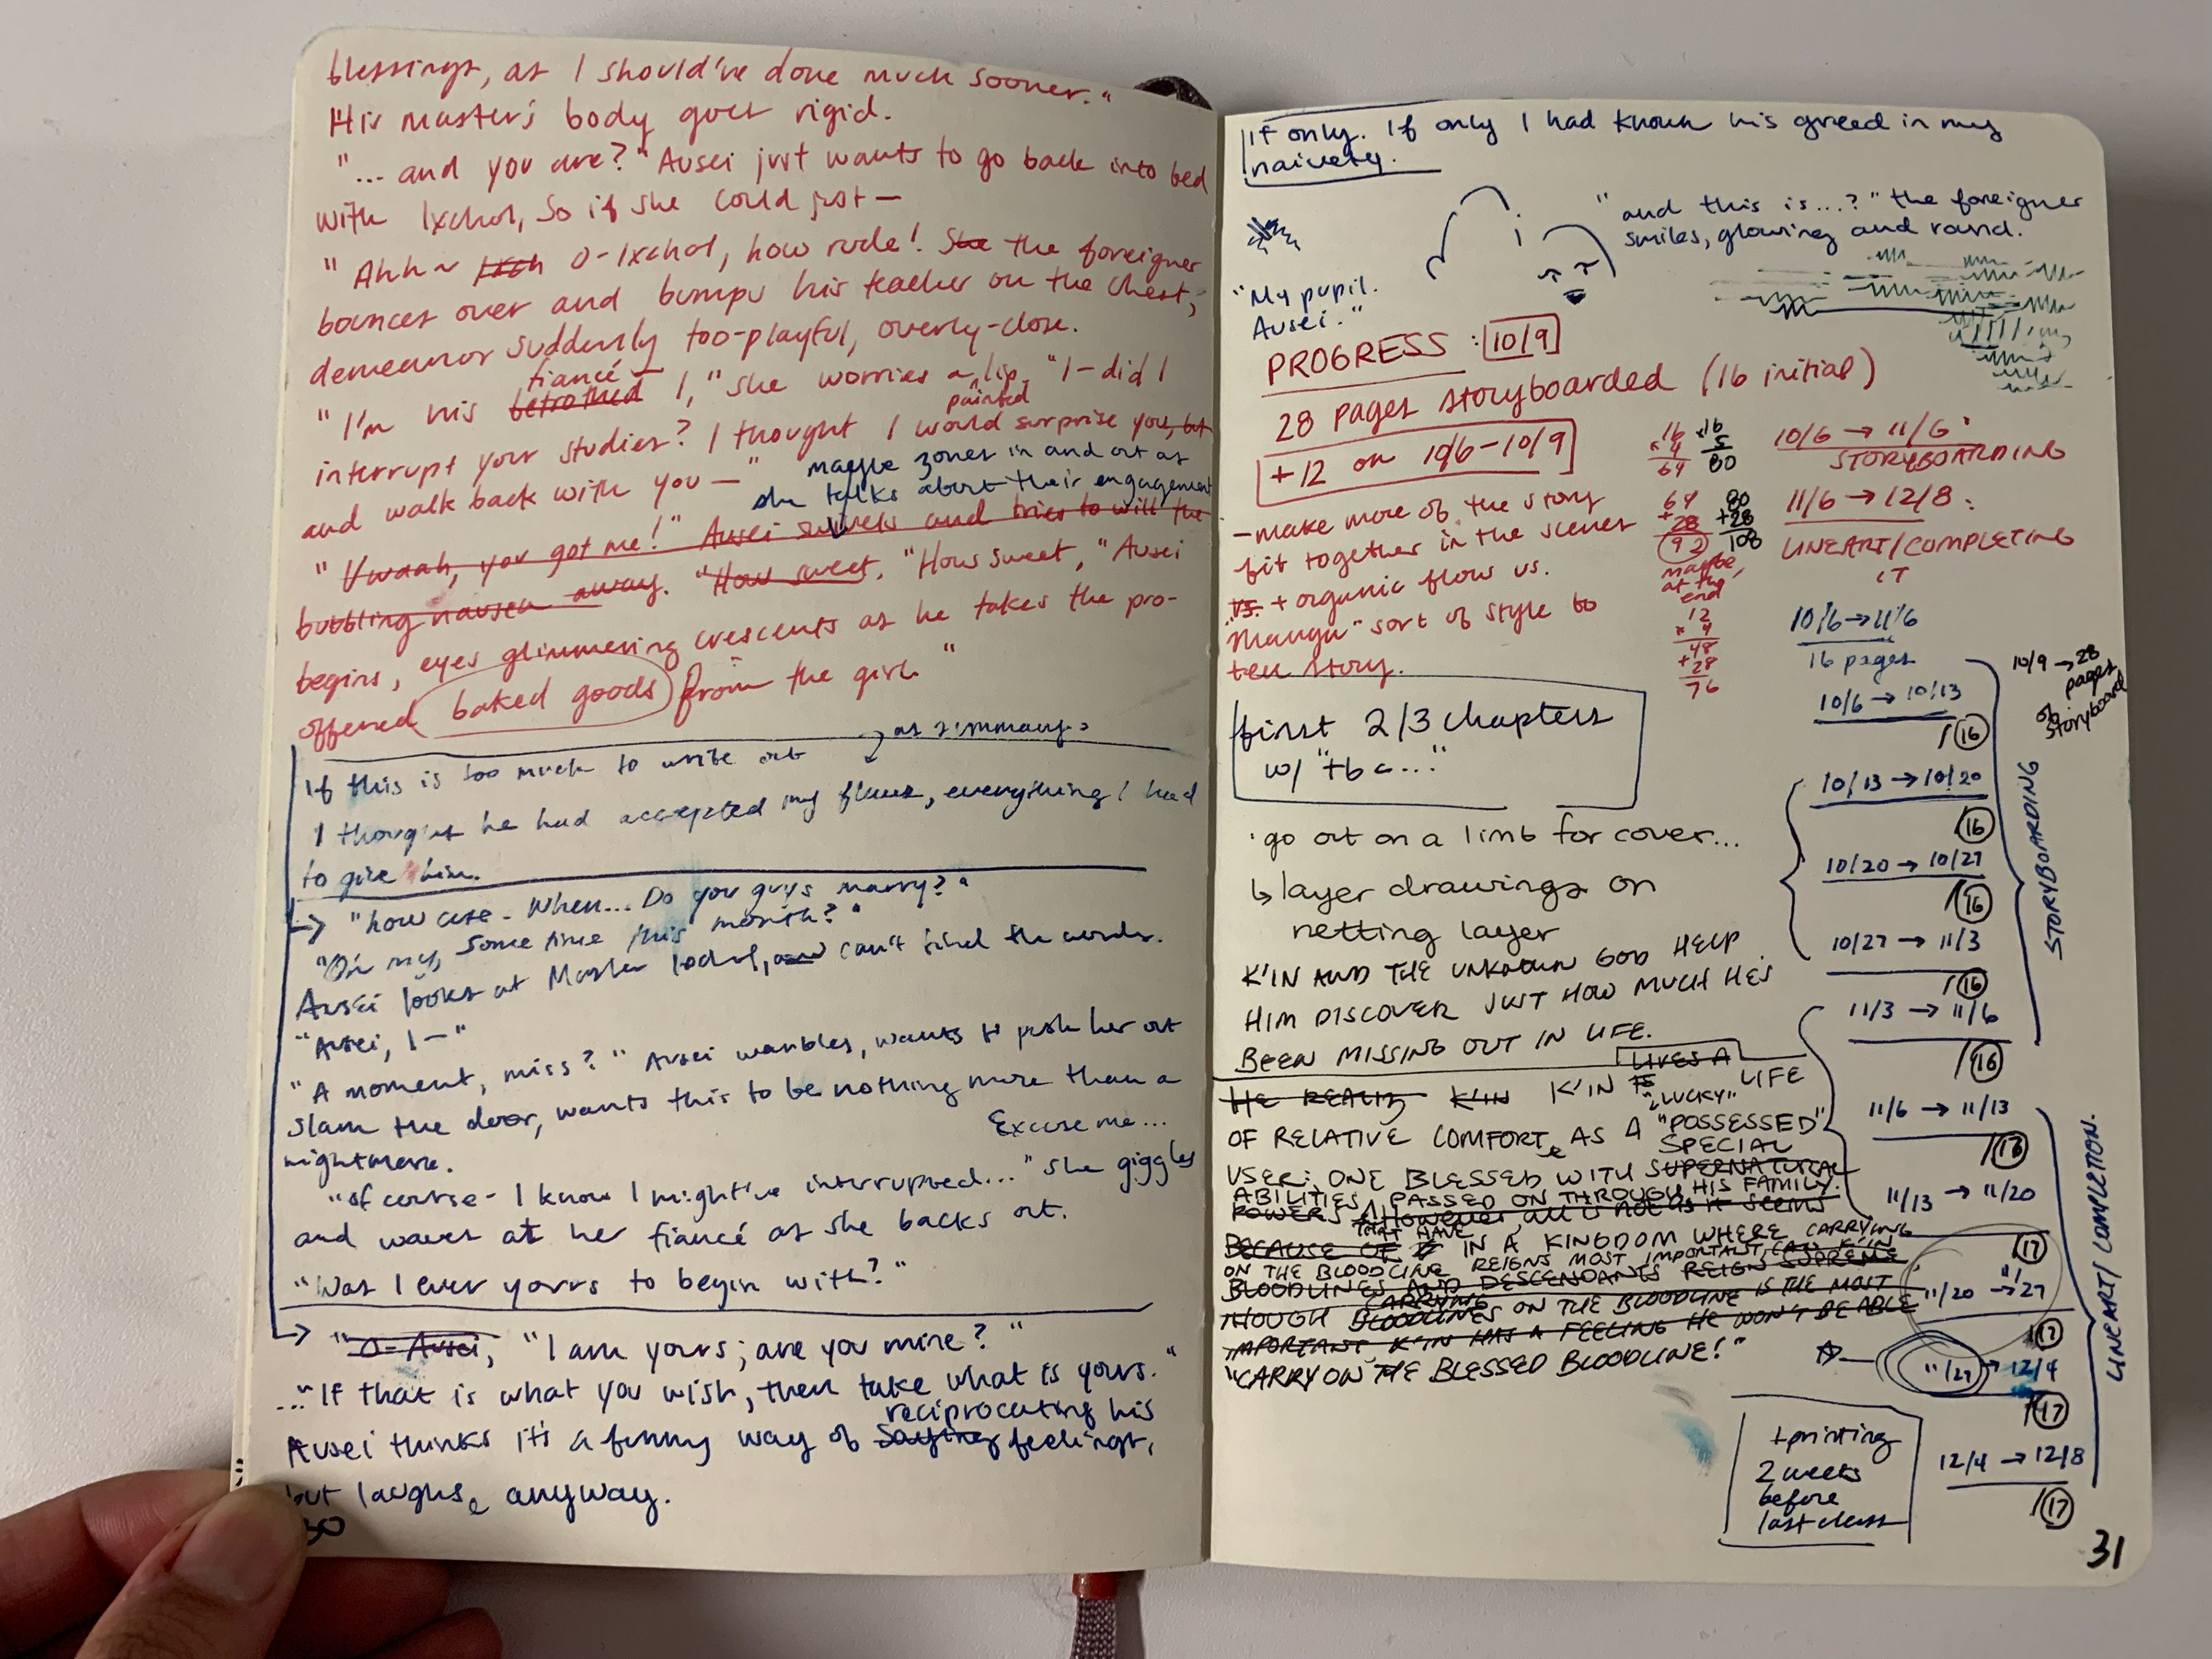 blessings, as I should've done much sooner."
"His master's body goes rigid.
"... and you are?" Ausei just wants to go back into bed
with Ixchol, so if she could just —
"Ahh ~ Ixch O-Ixchol, how rude! She the foreigner
bounces over and bumps his teacher on the chest,
demeanor suddenly too-playful, overly-close.
fiancé —
"I'm his betrothed I," she worries a lip, "I-did I
painted
interrupt your studies? I thought I would surprise you, but
and walk back with you —"
maybe zones in and out as
she talks about their engagement
"Vwaah, you got me!" Ausei swivels and tries to will the
bubbling nausea away. "How sweet. "How sweet," Ausei
begins, eyes glimmering crescents as he takes the pro-
offered baked goods from the girl."
If this is too much to write out
as summary
I thought he had accepted my flaws, everything I had
to give him.
→ "how cute - When... Do you guys marry?"
"Oh my, some time this month?"
Ausei looks at Master Ixchol, and can't find the words.
"Ausei, I —"
"A moment, miss?" Ausei warbles, wants to push her out
slam the door, wants this to be nothing more than a
nightmare.
Excuse me...
"of course - I know I might've interrupted..." she giggles
and waves at her fiancé as she backs out.
"Was I ever yours to begin with?"
→ "O-Ausei, "I am yours; are you mine?"
..."If that is what you wish, then take what is yours."
reciprocating his
Ausei thinks it's a funny way of saying feelings,
but laughs, anyway.
30
If only. If only I had known his greed in my
naivety.
"and this is...?" the foreigner
smiles, glowing and round.
"My pupil.
Ausei."
PROGRESS: 10/9
28 pages storyboarded (16 initial)
+12 on 10/6-10/9
- make more of the story
fit together in the scenes
vs. + organic flow vs.
"manga" sort of style to
tell story.
16
×4
64
×16
5
80
64
+28
92
80
+28
108
maybe,
at the
end
12
×4
48
+28
76
10/6 → 11/6:
STORYBOARDING
11/6 → 12/8:
LINEART/COMPLETING
IT
10/6 → 11/6
16 pages
10/6 → 10/13
/16
10/13 → 10/20
/16
10/20 → 10/27
/16
10/27 → 11/3
/16
11/3 → 11/6
/16
11/6 → 11/13
/18
11/13 → 11/20
/17
11/20 → 11/27
/17
11/27 → 12/4
/17
12/4 → 12/8
/17
10/9 → 28
pages
of
storyboard
STORYBOARDING
LINEART/COMPLETION.
first 2/3 chapters
w/ "tbc..."
· go out on a limb for cover...
↳ layer drawings on
netting layer
K'IN AND THE UNKNOWN GOD HELP
HIM DISCOVER JUST HOW MUCH HE'S
BEEN MISSING OUT IN LIFE.
LIVES A
HE REALIZ K'IN K'IN IS "LUCKY" LIFE
OF RELATIVE COMFORT, AS A "POSSESSED"
SPECIAL
USER; ONE BLESSED WITH SUPERNATURAL
ABILITIES PASSED ON THROUGH HIS FAMILY.
POWERS However, all is not as it seems
THAT HAVE
BECAUSE OF IN A KINGDOM WHERE CARRYING
ON THE BLOODLINE REIGNS MOST IMPORTANT, K'IN
BLOODLINES AND DESCENDANTS REIGN SUPREME,
CARRYING
THOUGH BLOODLINES ON THE BLOODLINE IS THE MOST
IMPORTANT K'IN HAS A FEELING HE WON'T BE ABLE
"CARRY ON THE BLESSED BLOODLINE!"
+ printing
2 weeks
before
last class
31